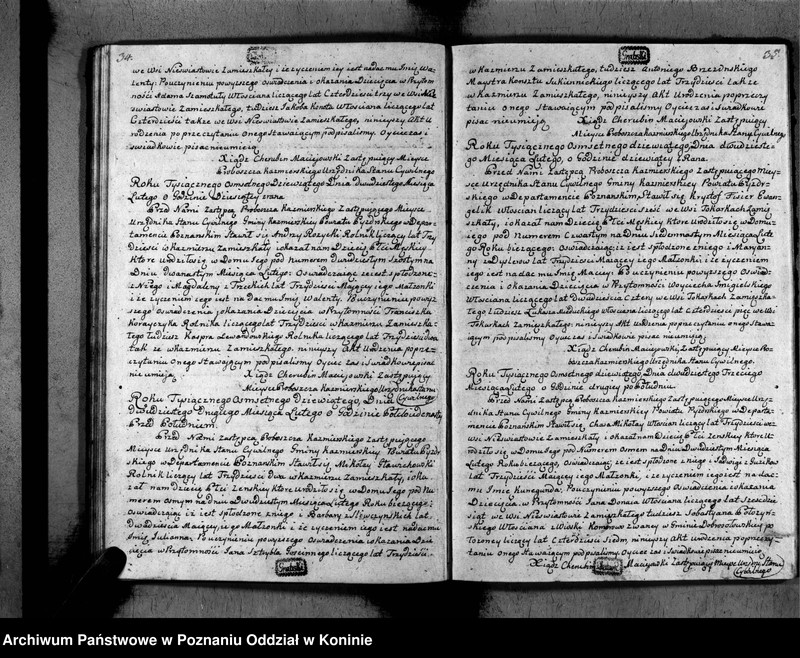 34.
we Wsi Nieświastowie Zamieszkałey i że życzeniem iey iest nadać mu Imię Wa-
lenty. Po uczynieniu powyższego oświadczenia i okazania Dziecięcia w Przytom-
ności Adama Szamatuły Włościana liczącego lat Czterdzieści trzy we Wsi Nie-
świastowie Zamieszkałego, tudzież Jakoba Włościana liczącego lat
Czterdzieści także we Wsi Nieświastowie Zamieszkałego, ninieyszy Akt U-
rodzenia po przeczytaniu onego Stawaiącym podpisaliśmy. Oyciec zaś i
świadkowie pisać nieumieią
Xiądz Cherubin Maciejowski Zastępuiący Mieysce
Proboszcza Kazmierskiego Urzędnika Stanu Cywilnego
Roku Tysiącznego Osmsetnego Dziewiątego Dnia Dwudziestego Miesiąca
Lutego o Godzinie Dziesiątey zrana.
Przed Nami Zastępcą Proboszcza Kazmierskiego Zastępuiącego Mieysce
Urzędnika Stanu Cywilnego Gminy Kazmierskiey Powiatu Pyzdrskiego w Depar-
tamencie Poznańskim Stawił się Andrzy Rożycki Rolnik liczący lat Trzy
dzieści w Kazmierzu Zamieszkały i okazał nam Dziecię Płci Męskiey
Które urodziło się w Domu Jego pod Numerem Dwudziestym Szóstym na
Dniu Dwunastym Miesiąca Lutego. Oświadczaiąc że iest spłodzone
z Niego i Magdaleny z Trzeckich lat Trzydzieści Maiącey iego Małżonki
i że życzeniem iego iest nadać mu Imię Walenty. Po uczynieniu powyż-
szego oświadczenia i okazania Dziecięcia w Przytomności Franciszka
Rolnika liczącego lat Trzydzieści w Kazmierzu Zamieszka-
łego tudzież Kaspra Lewandowskiego Rolnika liczącego lat Trzydzieści dwa
także w Kazmierzu Zamieszkałego. ninieyszy Akt Urodzenia po prze-
czytaniu onego Stawaiącym podpisaliśmy Oyciec zaś i Świadkowie pisać
nieumieią
Xiądz Cherubin Maciejowski Zastępuiący
Mieysce Proboszcza Kazmierskiego Urzędnika Stanu
Cywilnego
Roku Tysiącznego Osmsetnego Dziewiątego, Dnia
Dwudziestego Drugiego Miesiąca Lutego o Godzinie
Przed Południem.
Przed Nami Zastępcą Proboszcza Kazmierskiego Zastępuiącego
Mieysce Urzędnika Stanu Cywilnego Gminy Kazmierskiey Powiatu Pyzdr-
skiego w Departamencie Poznańskim Stawił się Mikołay
Rolnik liczący lat Trzydzieści dwa w Kazmierzu Zamieszkały, i oka-
zał nam Dziecię Płci Żenskiey które urodziło się w Domu Jego pod Nu-
merem Osmym na Dniu Dwudziestym Miesiąca Lutego Roku bieżącego;
Oświadczaiąc iż iest spłodzone zniego i Barbary lat
Dwadzieścia Maiącey, iego Małżonki i że życzeniem iego iest nadać mu
Imię Julianna. Po uczynieniu powyższego Oświadczenia i okazania Dzie-
cięcia w Przytomności Jana Sztybla Gościnnego liczącego lat Trzydzieści
35.
w Kazmierzu Zamieszkałego, tudzież Antoniego Brzezińskiego
Maystra Konsztu Sukiennickiego liczącego lat Trzydzieści także
w Kazmierzu Zamieszkałego, ninieyszy Akt Urodzenia po przeczy-
taniu onego Stawaiącym podpisaliśmy Oyciec zaś i Świadkowie
pisać nieumieią
Xiądz Cherubin Maciejowski Zastępuiący
Mieysce Proboszcza Kazmierskiego Urzędnika Stanu Cywilnego
Roku Tysiącznego Osmsetnego dziewiątego, Dnia dwudzieste-
go Miesiąca Lutego, o Godzinie dziewiątey z Rana.
Przed Nami Zastępcą Proboszcza Kazmierskiego Zastępuiącego Miey-
sce Urzędnika Stanu Cywilnego Gminy Kazmierskiey Powiatu Pyzdr-
skiego w Departamencie Poznańskim, Stawił się Krystof Fisier Ewan-
gelik Włościan liczący lat Trzydzieści Sześć we Wsi Tokarkach Zamie
szkały, i okazał nam Dziecię Płci Męskiey które urodziło się w Domu
iego pod Numerem Czwartym na Dniu Siedmnastym Miesiąca Lute-
go Roku bieżącego: Oświadczaiąc iż iest spłodzone zniego i Maryan-
ny z Dyslerow lat Trzydzieści Maiącey iego Małżonki i że życzeniem
iego iest nadać mu Imię Maciey. Po uczynieniu powyższego Oświad-
czenia i okazania Dziecięcia w Przytomności Woyciecha Smigielskiego
Włościana liczącego lat Dwadzieścia Cztery we Wsi Tokarkach Zamieszka-
łego tudzież Łukasza Włościana liczącego lat Czterdzieści pięć we Wsi
Tokarkach Zamieszkałego: ninieyszy Akt Urodzenia po przeczytaniu onego Stawa-
iącym podpisaliśmy Oyciec zaś i Świadkowie pisać nieumieią
Xiądz Cherubin Maciejowski Zastępuiący Mieysce Pro-
boszcza Kazmierskiego Urzędnika Stanu Cywilnego.
Roku Tysiącznego Osmsetnego dziewiątego, Dnia dwudziestego Trzeciego
Miesiąca Lutego o Godzinie drugiey po Południu.
Przed Nami Zastępcą Proboszcza Kazmierskiego Zastępuiącego Mieysce Urzę-
dnika Stanu Cywilnego Gminy Kazmierskiey Powiatu Pyzdrskiego w Departa-
mencie Poznańskim Stawił się, Mikołay Włościan liczący lat Trzydzieści we
Wsi Nieświastowie Zamieszkały i okazał nam Dziecię Płci Żenskiey które U-
rodziło się w Domu Jego pod Numerem Osmem na Dniu Dwudziestym Miesiąca
Lutego Roku bieżącego, Oświadczaiąc że iest spłodzone z niego i Jadwigi z Guzikow
lat Trzydzieści Maiącey iego Małżonki, i że życzeniem iego iest nadać
mu Imię Kunegunda: Po uczynieniu powyższego Oświadczenia i okazania
Dziecięcia, w Przytomności Jana Doncia Włościana liczącego lat Sześćdzie
siąt we Wsi Nieświastowie Zamieszkałego tudzież Sebastyana
Włościana z Wioski zwaney w Gminie po
łożoney liczący lat Czterdzieści Siedm, ninieyszy Akt urodzenia po przeczy-
taniu onego Stawaiącym podpisaliśmy, Oyciec zaś i Świadkowie pisać nieumieią
Xiądz Cherubin Maciejowski Zastępuiący Mieysce Urzędnika Stanu
Cywilnego
Archiwum Państwowe w Poznaniu Oddział w Koninie